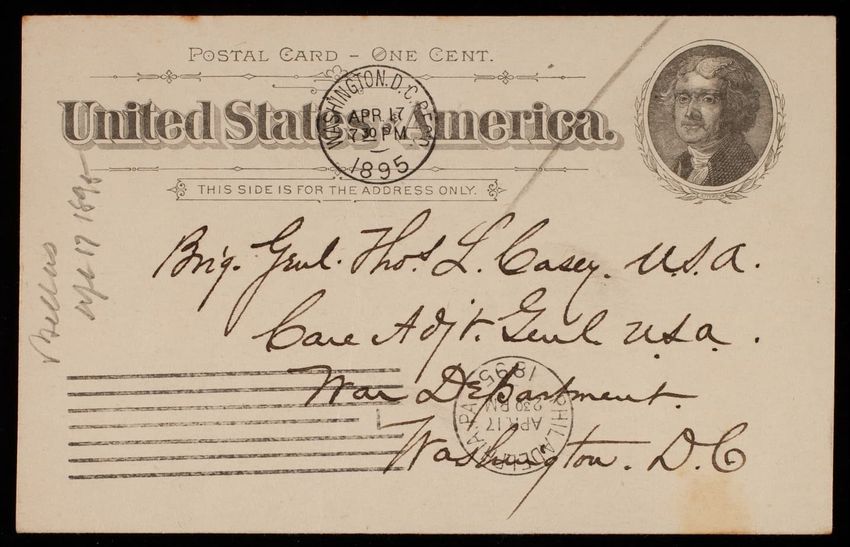 POSTAL CARD – ONE CENT.
United States of America.
THIS SIDE IS FOR THE ADDRESS ONLY.
WASHINGTON. D.C.
APR 17
7 30 PM
1895
Brig. Genl. Thos. L. Casey. U.S.A.
Care Adjt. Genl U.S.A.
War Department.
Washington. D.C
PHILADELPHIA. PA.
APR 17
2 30 PM
1895
Apl 17 1895